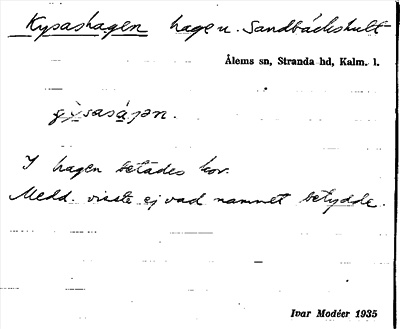 Kysashagen hage u. Sandbäckshult
Ålems sn, Stranda hd, Kalm. l.
I hagen betades kor.
Medd. visste ej vad namnet betydde.
Ivar Modéer 1935